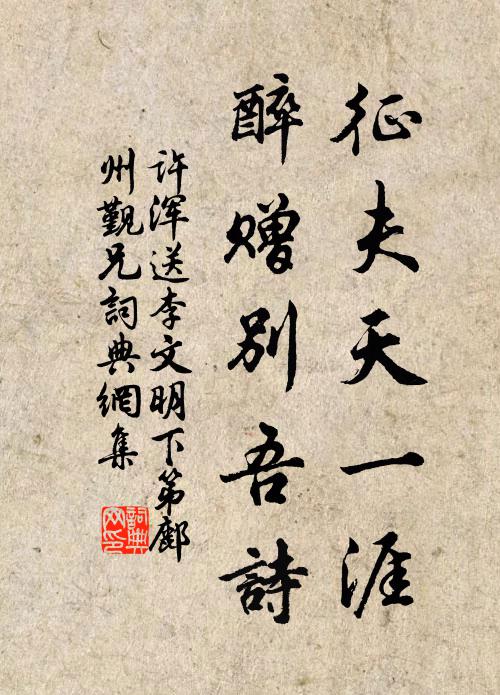 征夫天一涯
醉赠別吾詩
许浑送李文明下第鄜
州觐兄詞典網集
詞典网印